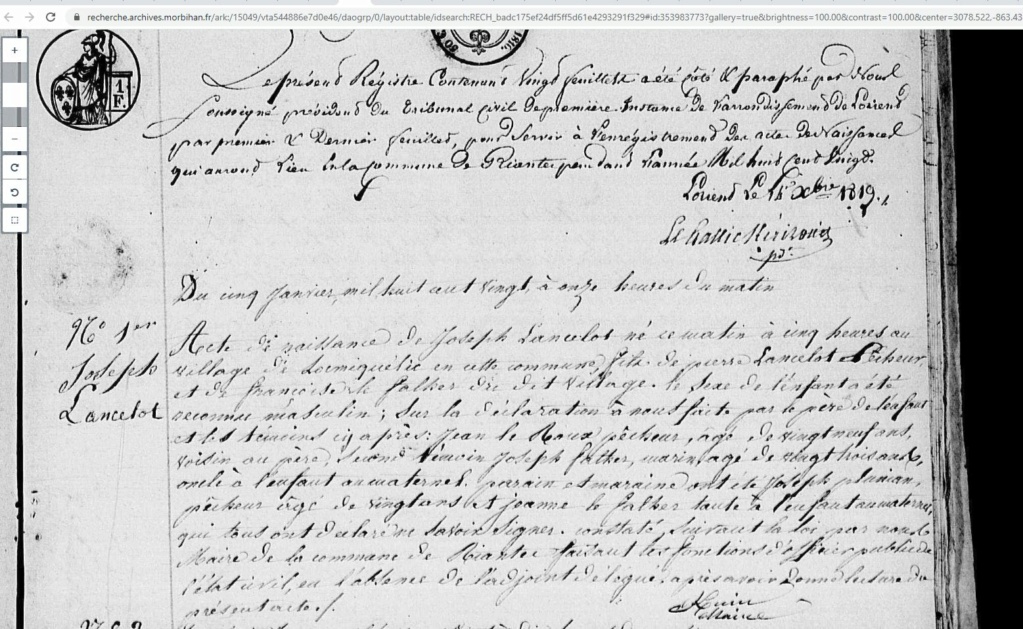 recherche.archives.morbihan.fr/ark:/15049/vta544886e7d0e46/daogrp/0/layout:table/idsearch:RECH_badc175ef24df5ff5d61e4293291f329#id:353983773?gallery=true&brightness=100.00&contrast=100.00&center=3078.522,-863.43
1 F.
Le présent Registre Contenant Vingt feuillets a été coté & paraphé par Nous
Soussigné président du Tribunal Civil de première Instance de L'arrondissement de Lorient
par premier & Dernier feuillet, pour Servir à L'enrégistrement Des actes de Naissances
qui auront Lieu en la Commune de Riantec pendant L'année Mil huit Cent Vingt.
Lorient Le 14 Xbre 1819.
pdt
Du cinq Janvier mil huit cent vingt, à onze heures du matin
No 1er
Joseph
Lancelot
Acte de naissance de Joseph Lancelot né ce matin à cinq heures au
village de Locmiquélic en cette commune, fils de pierre Lancelot pêcheur,
et de françoise le falher du dit village. le sexe de l'enfant a été
reconnu masculin ; sur la déclaration à nous faite par le père de l'enfant
et les témoins ci après : Jean le Roux pêcheur, agé de vingt neuf ans,
voisin au père, second témoin Joseph falher, marin, agé de vingt trois ans,
oncle à l'enfant au maternel. parrain et maraine ont été Joseph
pêcheur agé de vingt ans et jeanne le falher tante à l'enfant au maternel,
qui tous ont déclaré ne savoir signer. constaté, suivant la loi, par nous
Maire de la commune de Riantec faisant les fonctions d'officier public de
l'état civil, en l'absence de l'adjoint délégué. après avoir donné lecture du
présent acte ./.
Maire